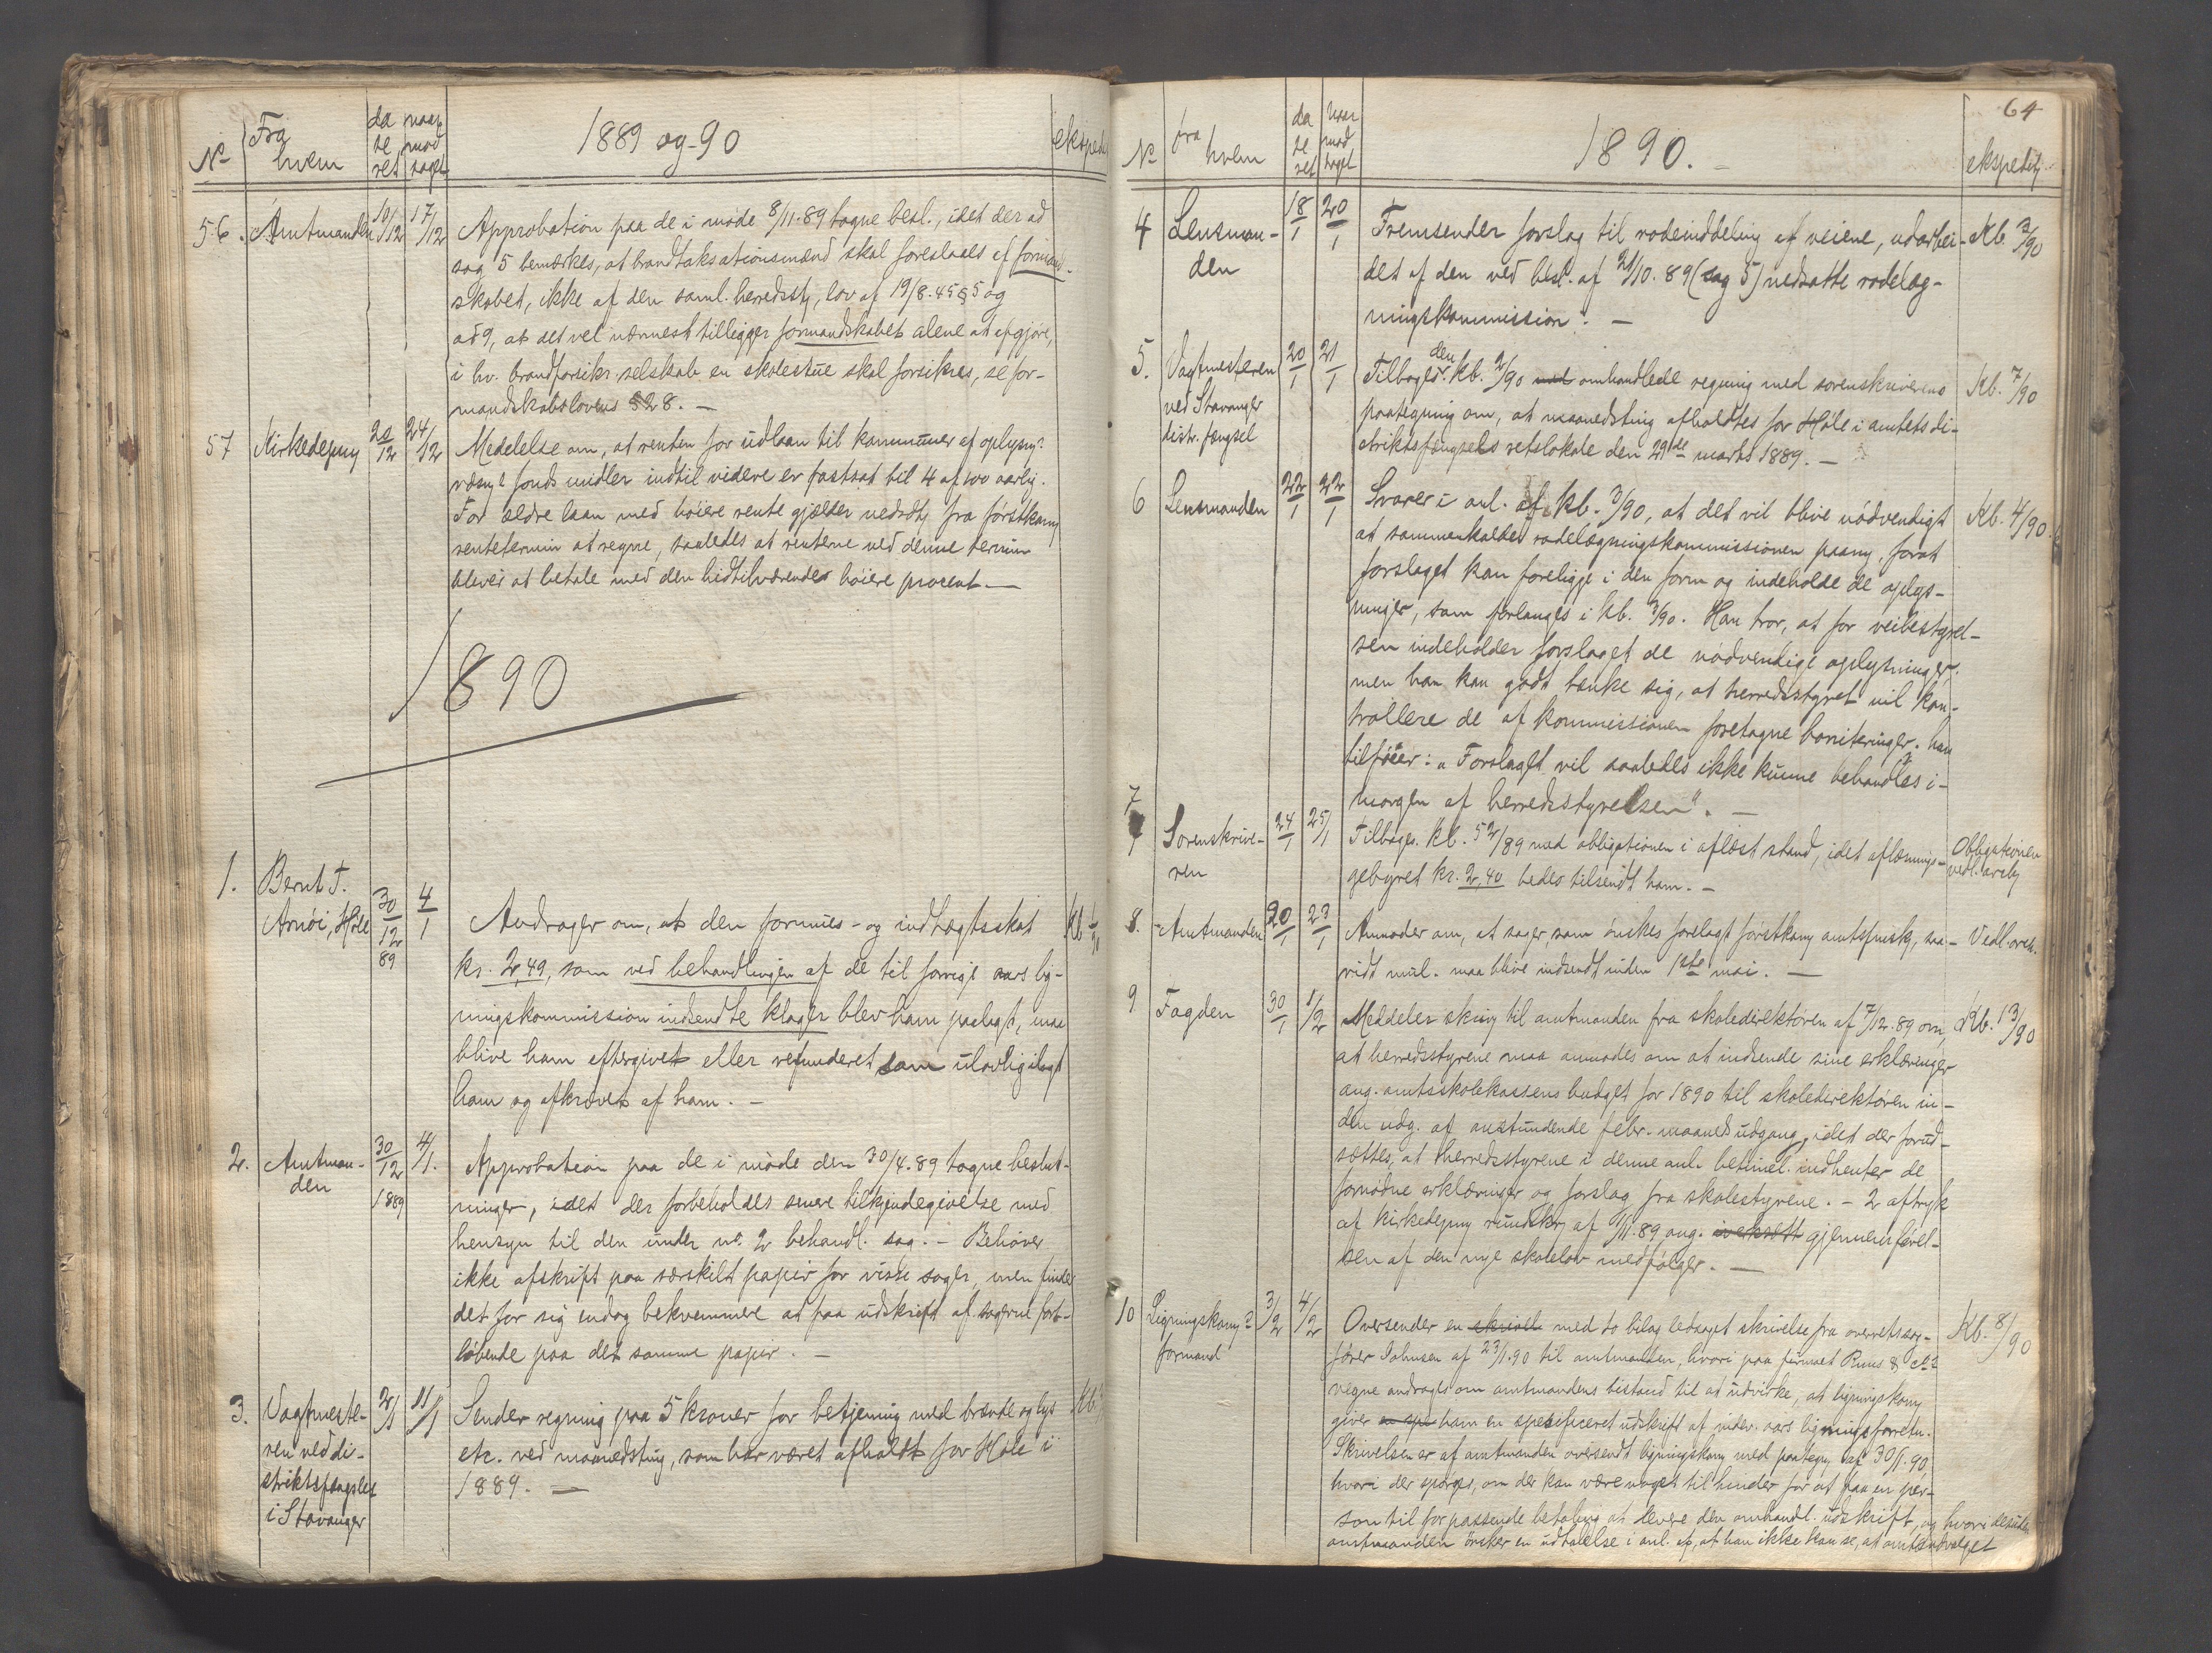 No Fra hvem da te ret naar mod taget 1889 og 90 eksped
56. Amtmanden 10/12 17/12 Approbation paa de i møde 8/11.89 tagne besl., idet der ad
sag 5 bemærkes, at brandtaksationsmænd skal foreslaaes af formand-
skabet, ikke af den saml. herredsst., lov af 19/8.45 § 5 og
ad 9, at det vel nærmest tilligger formandskabet alene at afgjøre,
i hv. brandforsikr. selskab en skolestue skal forsikres, se for-
mandskabslovens § 28. —
57 Kirkedepng 20/12 24/12 Meddelelse om, at renten for udlaan til kommuner af oplysn.
væsn. fonds midler indtil videre er fastsat til 4 af 100 aarlig.
For ældre laan med høiere rente gjælder nedsdtg fra førstkomg
rentetermin at regne, saaledes at renterne ved denne termin
bliver at betale med den hidtilværende høiere procent. —
1890
1. Bernt T.
Arnøi, Høle 30/12 89 4/1 Andrager om, at den formues- og indtægtsskat Kb 1/90
kr. 2,49, som ved behandlingen af de til forrige aars lig-
ningskommission indsendte klager blev ham paalagt, maa
blive ham eftergivet eller refunderet som ulovlig ilagt
ham og afkrævet af ham. —
2. Amtman-
den 30/12 1889 4/1. Approbation paa de i møde den 30/4.89 tagne beslut-
ninger, idet der forbeholdes senere tilkjendegivelse med
hensyn til den under no. 2 behandl. sag. — Behøver
ikke afskrift paa særskilt papir for visse sager, men finder
det for sig endog bekvemmere at faa udskrift af sagerne fort-
løbende paa det samme papir. —
3. Vagtmeste-
ren ved di-
striktsfængslet
i Stavanger 2/1 11/1 Sender regning paa 5 kroner for betjening med brænde og lys Kb
etc. ved maanedsting, som har været afholdt for Høle i
1889. —
64
No fra hvem da te ret naar mod taget 1890. — ekspedity
4 Lensman-
den 18/1 20/1 Fremsender forslag til rodeinddeling af veiene, udarbei- Kb. 3/90
det af den ved besl. af 21/10.89 (sag 5) nedsatte rodelæg-
ningskommission. —
5. Vagtmesteren
ved Stavanger
distr. fængsel 20/1 21/1 Tilbages. den kb. 2/90 med omhandlede regning med sorenskriverens Kb. 7/90
paategning om, at maanedsting afholdtes for Høle i amtets di-
striktsfængsels retslokale den 29de marts 1889. —
6 Lensmanden 22/1 22/1 Svarer i anl. af kb. 3/90, at det vil blive nødvendigt Kb. 4/90.
at sammenkalde rodelægningskommissionen paany, forat
forslaget kan foreligge i den form og indeholde de oplys-
ninger, som forlanges i kb. 3/90. Han tror, at for veibestyrel-
sen indeholder forslaget de nødvendige oplysninger,
men han kan godt tænke sig, at herredsstyret vil kon-
trollere de af kommissionen foretagne boniteringer. han
tilføier: „Forslaget vil saaledes ikke kunne behandles i-
morgen af herredsstyrelsen". —
7 Sorenskrive-
ren 24/1 25/1 Tilbages. kb. 52/89 med obligationen i aflæst stand, idet aflæsnings- Obligationen
gebyret kr. 2,40 bedes tilsendt ham. — vedl. arch
8. Amtmanden 20/1 23/1 Anmoder om, at sager, som ønskes forelagt førstkomg amtsfmsk, saa- Vedl. arch.
vidt mul. maa blive indsendt inden 1ste mai. —
9 Fogden 30/1 1/2 Meddeler skriv til amtmanden fra skoledirektøren af 7/12.89 om, Kb. 13/90
at herredsstyrene maa anmodes om at indsende sine erklæringer
ang. amtsskolekassens budget for 1890 til skoledirektøren in-
den udg. af anstundende febr. maaneds udgang, idet der forud-
sættes, at herredsstyrene i denne anl. betimel. indhenter de
fornødne erklæringer og forslag fra skolestyrene. — 2 aftryk
af kirkedepng rundskr. af 1/11.89 ang. iverksætt gjennemførel-
sen af den nye skolelov medfølger. —
10 Ligningskomg
formand 3/2 4/2 Oversender en skrivel med to bilag ledsaget skrivelse fra overretssag- Kb. 8/90
fører Johnsen af 23/1.90 til amtmanden, hvori paa firmaet & Co
vegne andrages om amtmandens bistand til at udvirke, at ligningskomg
giver en spe ham en spesificeret udskrift af aars ligningsforretn.
Skrivelsen er af amtmanden oversendt ligningskom med paategng af 30/1.90,
hvori der spørges, om der kan være noget til hinder for at faa en per-
son til for passende betaling at levere den omhandl. udskrift, og hvori desuden
amtmanden ønsker en udtalelse i anl. af, at han ikke kan se, at amtsudvalget